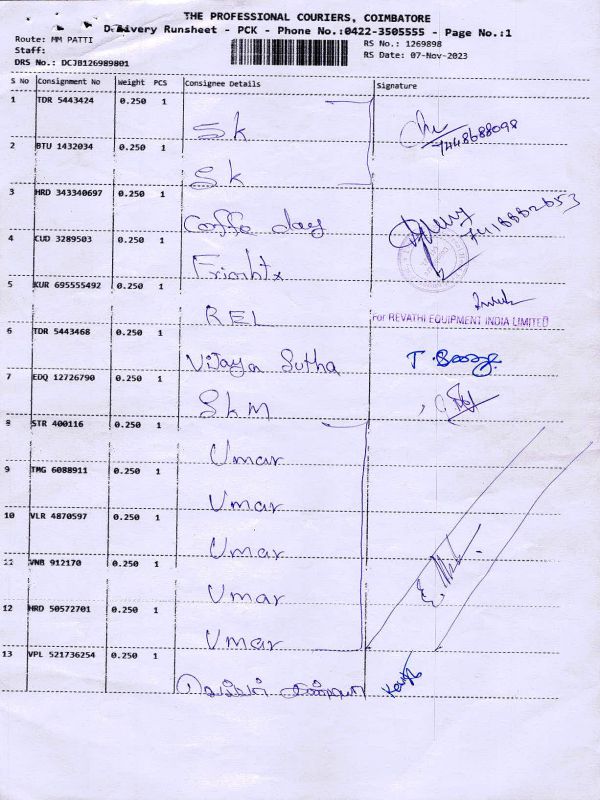 THE PROFESSIONAL COURIERS, COIMBATORE
Delivery Runsheet - PCK - Phone No.:0422-3505555 - Page No.:1
Route: MM PATTI
RS No.: 1269898
Staff:
RS Date: 07-Nov-2023
DRS No.: DCJB126989801
S No Consignment No Weight PCS Consignee Details Signature
1 TDR 5443424 0.250 1
Sk
7448688098
2 BTU 1432034 0.250 1
Sk
3 HRD 343340697 0.250 1
Coffe day
4 CUD 3289503 0.250 1
5 KUR 695555492 0.250 1
REL
For REVATHI EQUIPMENT INDIA LIMITED
6 TDR 5443468 0.250 1
Vijaya Sutha
7 EDQ 12726790 0.250 1
SKM
8 STR 400116 0.250 1
Umar
9 TMG 6088911 0.250 1
Umar
10 VLR 4870597 0.250 1
Umar
11 VNB 912170 0.250 1
Umar
12 HRD 50572701 0.250 1
Umar
13 VPL 521736254 0.250 1